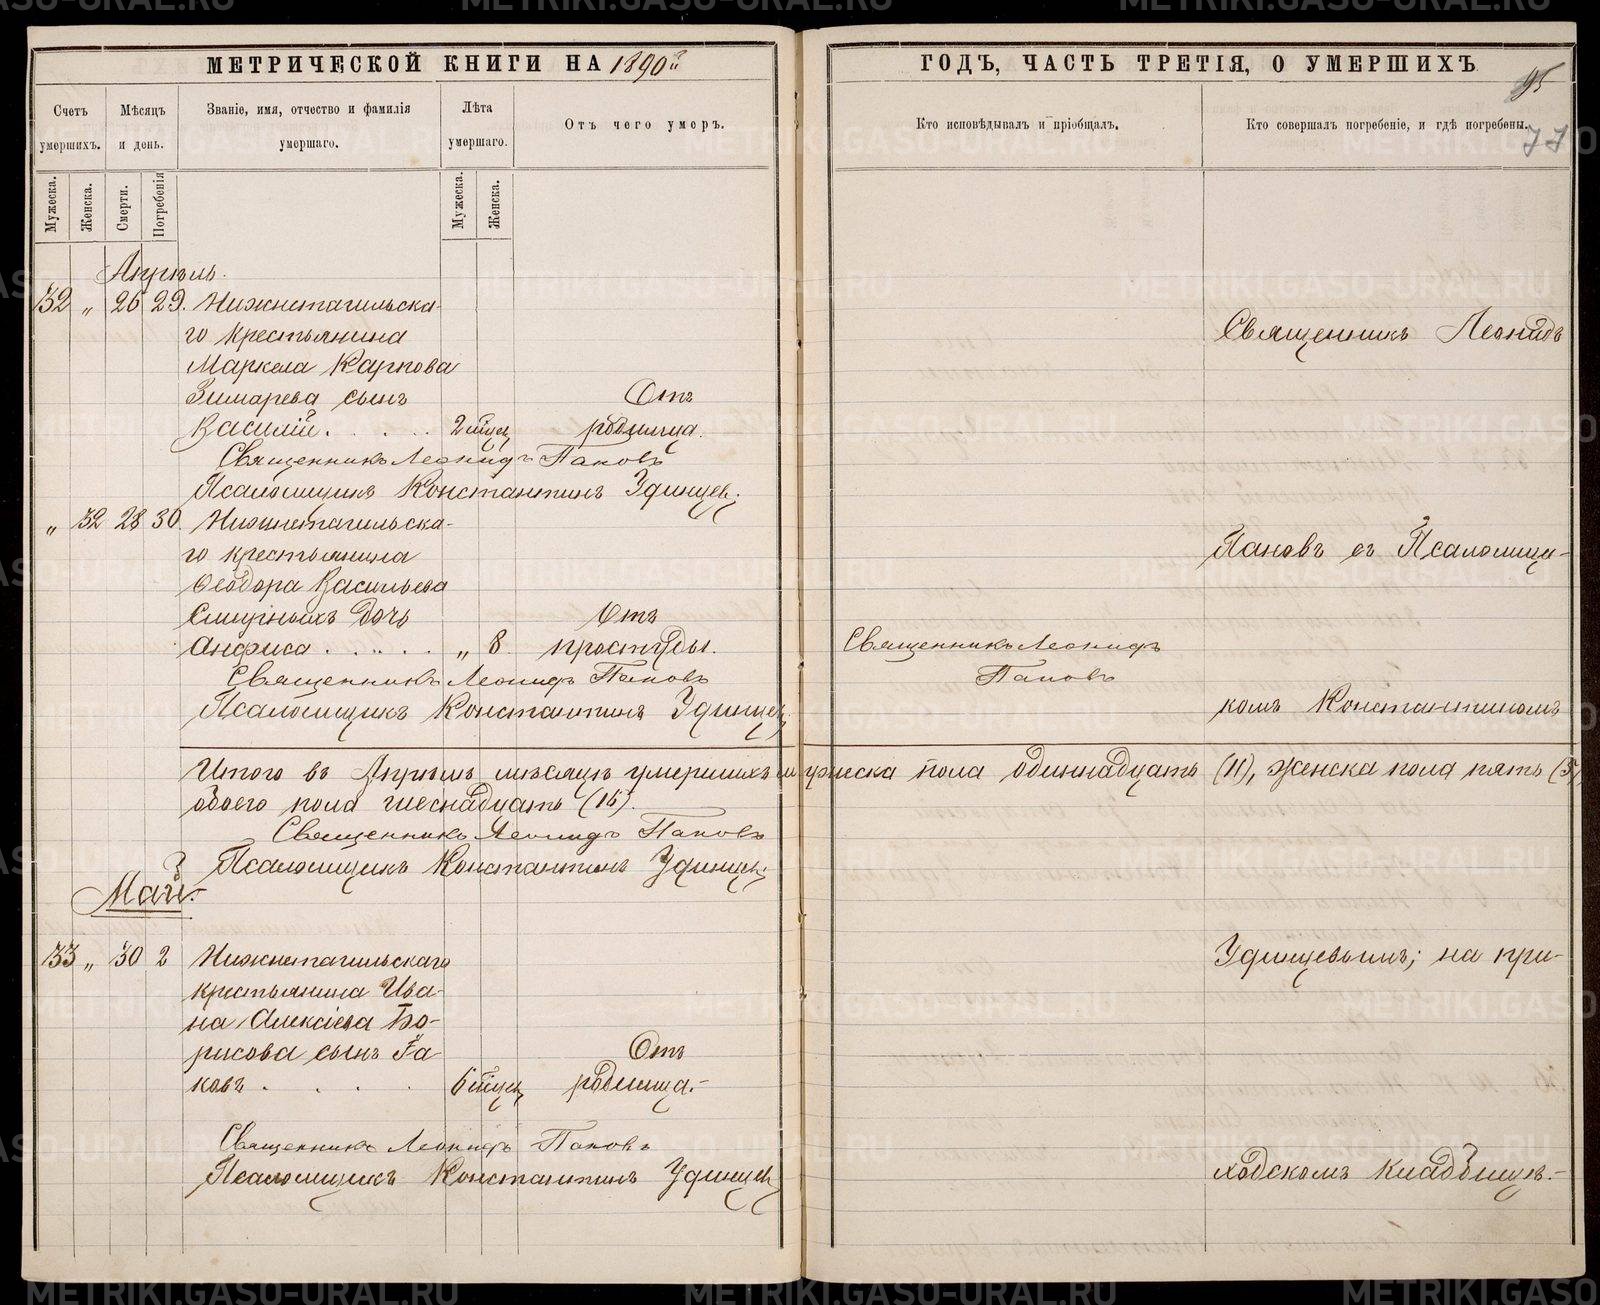 МЕТРИЧЕСКОЙ КНИГИ НА 1890й
Счетъ умершихъ.
Мѣсяцъ и день.
Званіе, имя, отчество и фамилія умершаго.
Лѣта умершаго.
Отъ чего умеръ.
Мужеска.
Женска.
Смерти.
Погребенія
Мужеска.
Женска.
Апрѣль.
32 „ 26 29. Нижнетагильска-
го крестьянина
Маркела Карпова
Зимарева сынъ Отъ
Василій. . . . . 2 мѣсяц родимца.
Священникъ Леонидъ Пановъ
Псаломщикъ Константинъ Удинцев.
„ 32 28 30. Нижнетагильска-
го крестьянина
Ѳеодора Васильева
дочь Отъ
Анфиса . . . . . „ 8. простуды.
Священникъ Леонидъ Пановъ
Псаломщикъ Константинъ Удинцев
Итого въ Апрѣлѣ мѣсяцѣ умершихъ мужеска пола одиннадцать (11), женска пола пять (5),
обоего пола шеснадцать (16).
Священникъ Леонидъ Пановъ
Псаломщикъ Константинъ Удинцев.
Май.
33 „ 30 2 Нижнетагильскаго
крестьянина Ива-
на Алексѣева Бо-
рисова сынъ Іа- Отъ
ковъ . . . . 6 мѣсяц родимца.-
Священникъ Леонидъ Пановъ
Псаломщикъ Константинъ Удинцев
ГОДЪ, ЧАСТЬ ТРЕТІЯ, О УМЕРШИХЪ
95
Кто исповѣдывалъ и пріобщалъ.
Кто совершалъ погребеніе, и гдѣ погребены.
77
Священникъ Леонидъ
Пановъ съ Псаломщи-
Священникъ Леонидъ
Пановъ
комъ Константиномъ
Удинцевымъ; на при-
ходскомъ кладбищѣ.-
METRIKI.GASO-URAL.RU